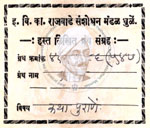 इ. वि. का. राजवाडे संशोधन मंडळ धुळे.
हस्त लिखित ग्रंथ संग्रह
ग्रंथ क्रमांक
ग्रंथ नाम
विषय कथा पुराणे.